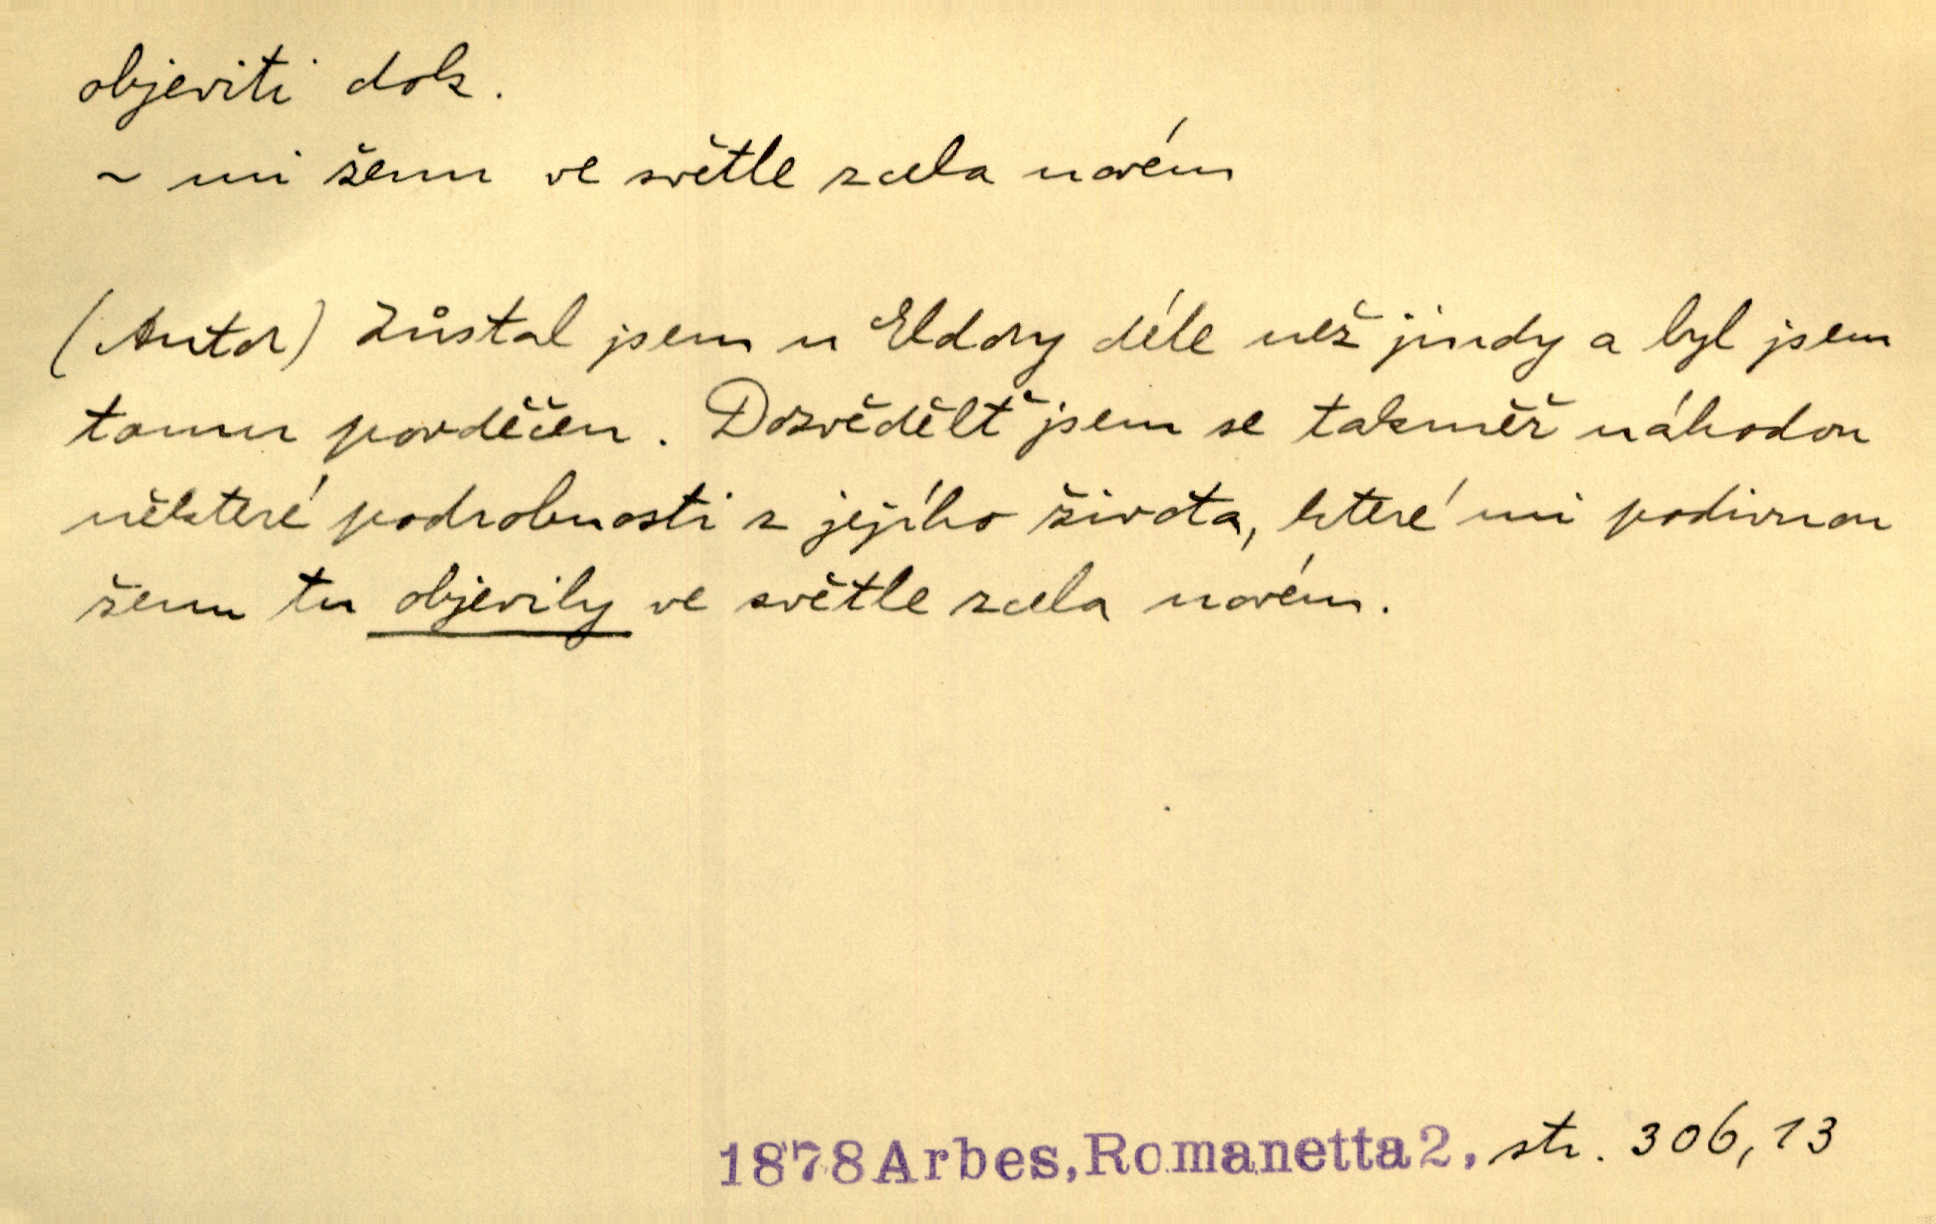 objeviti dok.
~ mi ženu ve světle zcela novém
(Autor) Zůstal jsem u Eldory déle než jindy a byl jsem
tomu povděčen. Dozvědělť jsem se takměř náhodou
některé podrobnosti z jejího života, které mi podivnou
ženu tu objevily ve světle zcela novém.
1878 Arbes, Romanetta 2, str. 306,13